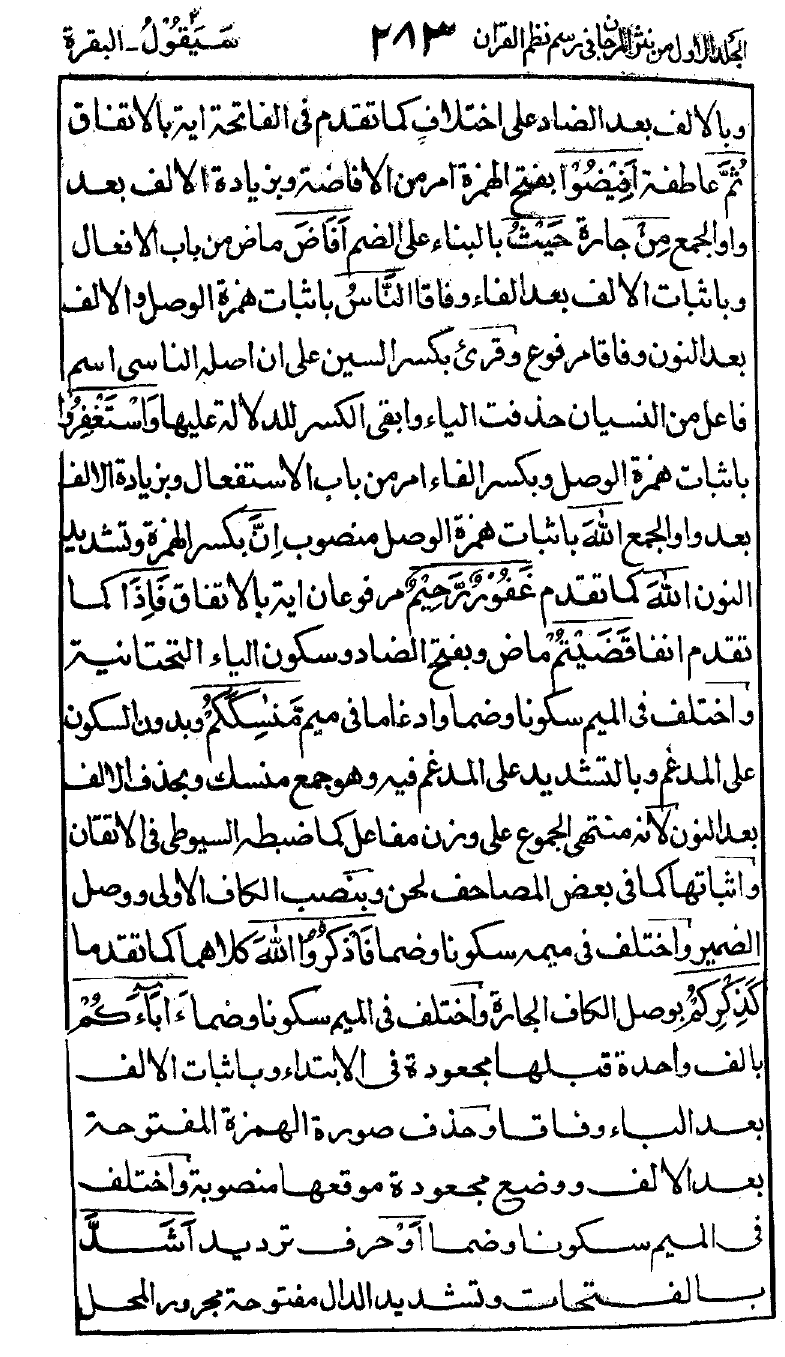 الجلد الاول من نثر المرجان في رسم نظم القرآن ٢٨٣ سَيَقُوْلُ ـ البقرة
وبالالف بعد الضاد على اختلافٍ كما تقدم فى الفاتحة اية بالاتفاق
ثُمَّ عاطفة اَفِيْضُوْا بفتح الهمزة امر من الافاضة وبزيادة الالف بعد
واو الجمع مِنْ جارة حَيْثُ بالبناء على الضم اَفَاضَ ماض من باب الافعال
وباثبات الالف بعد الفاء وفاقا النَّاسُ باثبات همزة الوصل والالف
بعد النون وفاقا مرفوع وقرئ بكسر السين على ان اصله الناسى اسم
فاعل من النسيان حذفت الياء وابقى الكسر للدلالة عليها وَاسْتَغْفِرُوا
باثبات همزة الوصل وبكسر الفاء امر من باب الاستفعال وبزيادة الالف
بعد واو الجمع اللهَ باثبات همزة الوصل منصوب اِنَّ بكسر الهمزة وتشديد
النون اللهَ كما تقدم غَفُوْرٌ رَّحِيْمٌ مرفوعان اية بالاتفاق فَاِذَا كما
تقدم انفا قَضَيْتُمْ ماض وبفتح الضاد وسكون الياء التحتانية
واختلف فى الميم سكونا وضما وادغاما فى ميم مَّنٰسِكَكُمْ وبدون السكون
على المدغم وبالتشديد على المدغم فيه وهو جمع منسك وبحذف الالف
بعد النون لانه منتهى الجموع على وزن مفاعل كما ضبطه السيوطى فى الاتقان
واثباتها كما فى بعض المصاحف لحن وبنصب الكاف الاولى ووصل
الضمير واختلف فى ميمه سكونا وضما فَاذْكُرُوا اللهَ كلاهما كما تقدما
كَذِكْرِكُمْ بوصل الكاف الجارة واختلف فى الميم سكونا وضما ءَابَآءَكُمْ
بالف واحدة قبلها مجعودة فى الابتداء وباثبات الالف
بعد الباء وفاقا وحذف صورة الهمزة المفتوحة
بعد الالف ووضع مجعودة موقعها منصوبة واختلف
فى الميم سكونا وضما اَوْ حرف ترديد اَشَدَّ
بالفتحات وتشديد الدال مفتوحة مجرور المحل